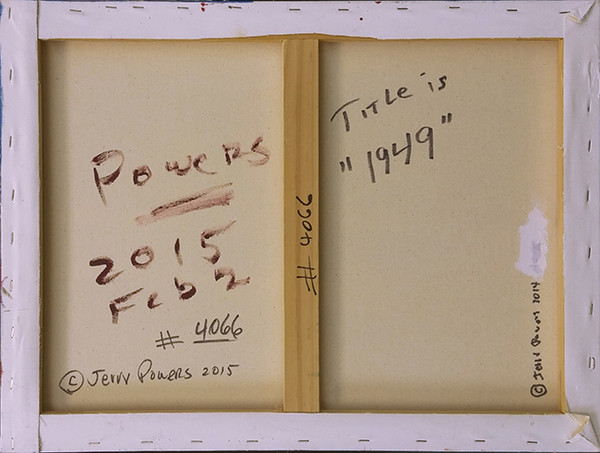 Powers
2015
Feb 2
# 4066
© Jerry Powers 2015
# 4066
Title is
"1949"
© 2014